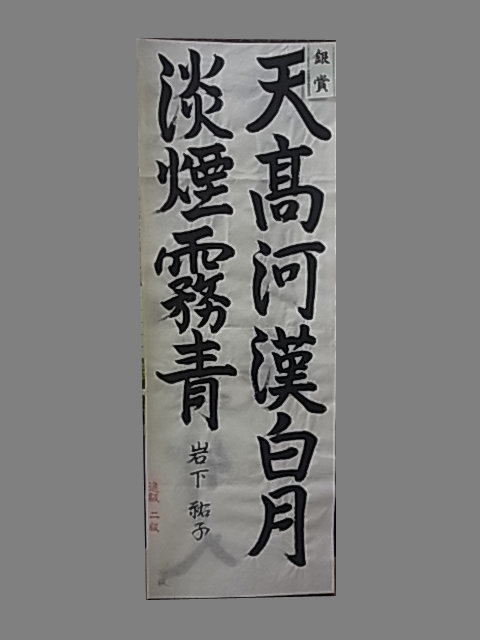 銀賞
天高河漢白月
淡煙霧青
岩下 祐子
進級 二級